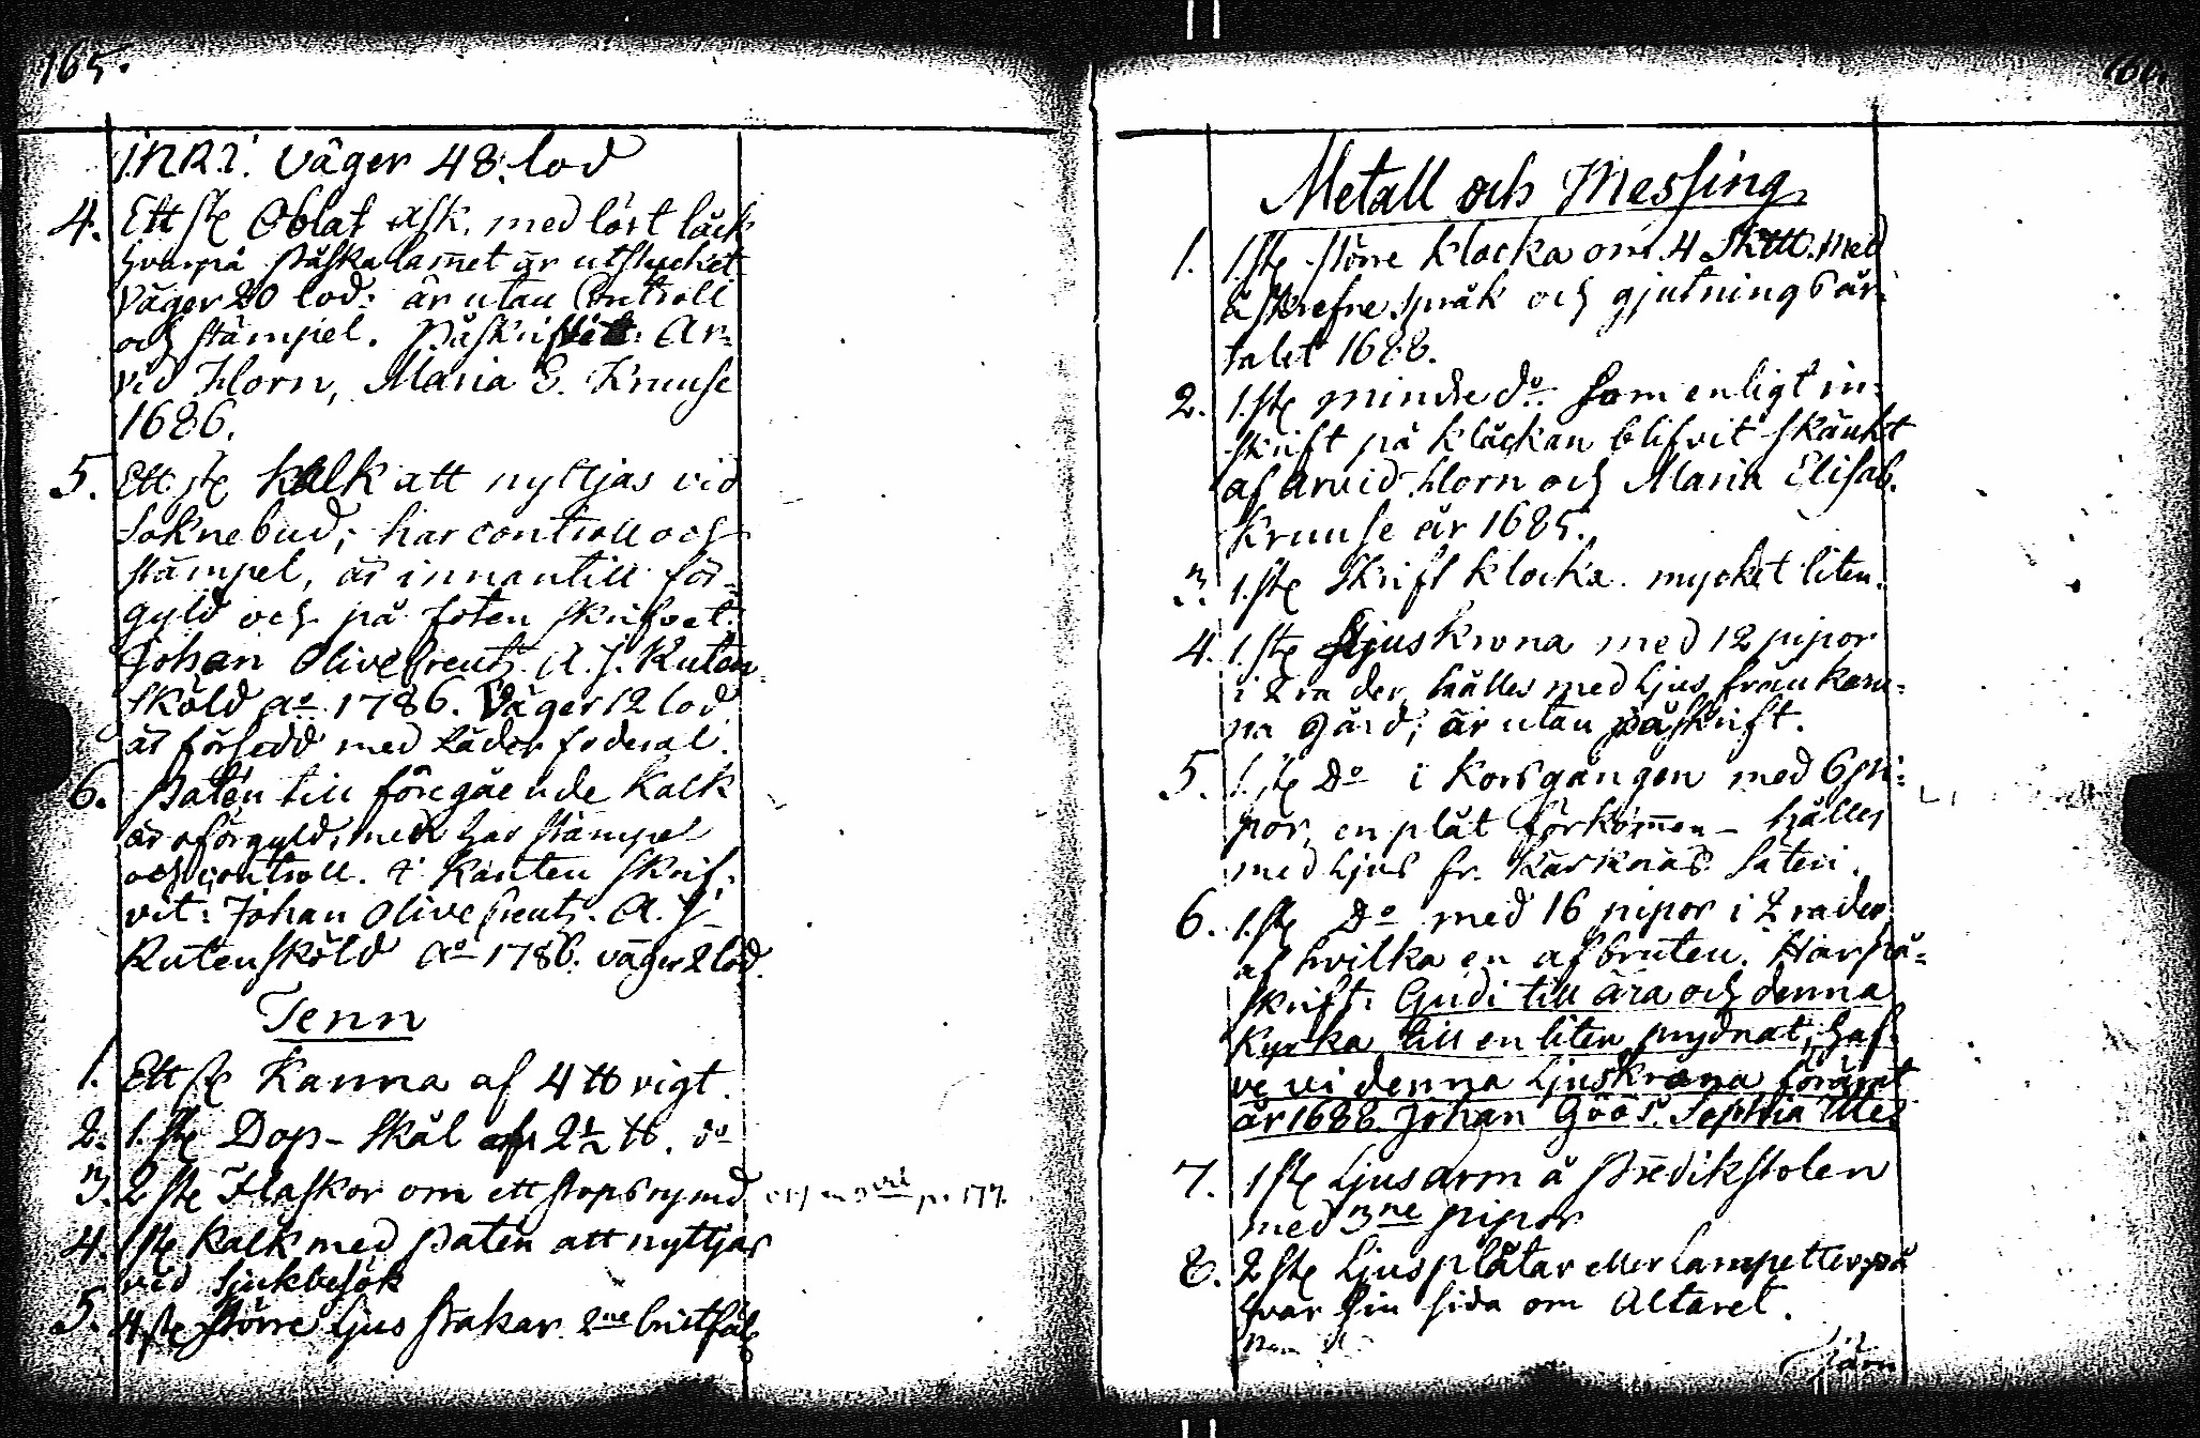 165.
I.N.R.I. Väger 48. lod
4. Ett st. Oblat ask, med löst låck
hvarpå Påskalam̄et är utstucket
Väger 20 lod: är utan Controll
och stämpel. Påskrifvit: Ar=
vid Horn, Maria E. Kruuse
1686.
5. Ett st. kalk att nyttjas vid
Soknebud; har controll och
stämpel, är innantill för=
gyld och på foten skrifvet:
Johan Olivecreutz. A. J. Ruten
sköld Ao 1786. Väger 12 lod
är försedd med Läder foderal.
6. Paten till föregående Kalk
är oförgyld, men har stämpel
och controll. i Kanten skrif=
vit: Johan Olivecreutz. A. J.
Rutensköld Ao 1786. väger 2 lod.
Tenn
1. Ett st. Kanna af 4 ℔ vigt.
2. 1. st. Dop-skål af 2½ ℔. do
3. 2 st. Flaskor om ett stops rymd
p. 177.
4. 1 st. Kalk med Paten att nyttjas
vid Sjukbesök
5. 4 st. större Ljus stakar 2ne bristfäl
Metall och Messing
1. 1. st. större Klocka om 4 Sk℔. med
åskrefne språk och gjutnings år=
talet 1688.
2. 1. st. mindre do. som enligt in=
skrift på klåckan blifvit skänkt
af Arvid Horn och Maria Elisab.
Kruuse år 1685.
3. 1. st. Skrift klocka. mycket liten.
4. 1. st. Ljuskrona med 12 pipor
i 2 rader, hålles med Ljus från
na Gård; är utan påskrift.
5. 1. st. Do i Korsgången med 6 pi=
por, en plåt förkom̄en - hålles
med Ljus fr. Karsknäs Säteri.
6. 1. st. Do med 16 pipor i 2 rader
af hvilka en afbruten. Har på=
skrift: Gudi till ära och denna
Kyrka till en liten prydnat, haf=
ve vi denna Ljuskrona förärat
år 1688. Johan Göös. Sophia
7. 1 st. Ljusarm å Predikstolen
med 3ne pipor
8. 2 st. Ljusplåtar eller Lampetter på
hvar sin sida om Altaret.
Järn